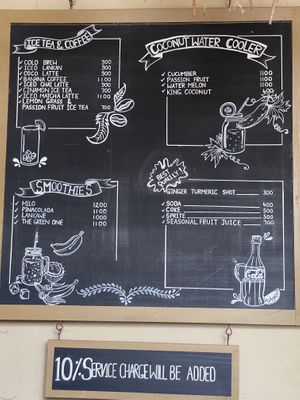 ICE TEA & COFFEE
✓ COLD BREW 300
✓ ICED LANKAN 300
✓ COCO LATTE 300
✓ BANANA COFFEE 1100
✓ ICED CHAI LATTE 300
✓ CINAMON ICE TEA 700
✓ ICED MATCHA LATTE 1100
✓ LEMON GRASS &
PASSION FRUIT ICE TEA 700
COCONUT WATER COOLER
✓ CUCUMBER 1100
✓ PASSION FRUIT 1100
✓ WATER MELON 1100
✓ KING COCONUT
SMOOTHIES
✓ MILO 1200
✓ PINACOLADA 1100
✓ LANIKAWE 1000
✓ THE GREEN ONE 1100
BEST
QUALITY
GINGER TURMERIC SHOT 300
✓ SODA 400
✓ COKE 500
✓ SPRITE 500
✓ SEASONAL FRUIT JUICE 700
Cola
10% SERVICE CHARGE WILL BE ADDED